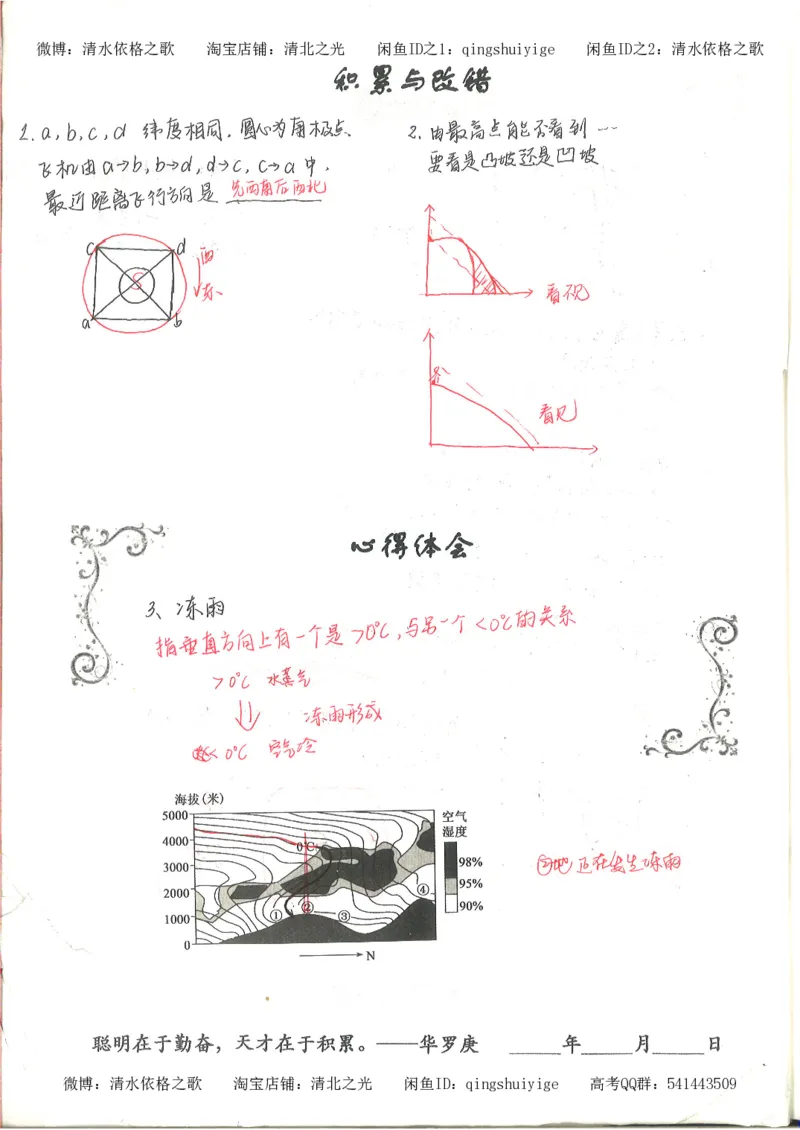 微博：清水依格之歌 淘宝店铺：清北之光 闲鱼ID之1：qingshuiyige 闲鱼ID之2：清水依格之歌
积累与改错
1. a, b, c, d 纬度相同，圆心为南极点、
飞机由a→b, b→d, d→c, c→a中，
最近距离飞行方向是 先西南后西北
c d 西
S
东
a b
2. 由最高点能否看到…
要看是凸坡还是凹坡
看不见
看见
心得体会
3、冻雨
指垂直方向上有一个是>0℃，与另一个<0℃的关系
>0℃ 水蒸气
冻雨形成
<0℃ 空气冷
海拔(米)
5000
4000
3000
2000
1000
0
0℃
① ② ③ ④
N
空气
湿度
98%
95%
90%
②地正在发生冻雨
聪明在于勤奋，天才在于积累。——华罗庚 年 月 日
微博：清水依格之歌 淘宝店铺：清北之光 闲鱼ID：qingshuiyige 高考QQ群：541443509